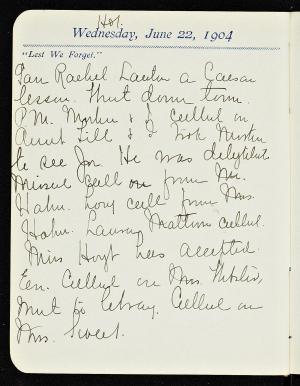 Hot.
Wednesday, June 22, 1904
"Lest We Forget."
Gave Rachel Lawton a Caesar
lesson. Went down town.
P.M. Mother & I called on
Aunt Till & I took Mother
to see Joe. He was delighted.
Missed call from Mr.
Hahn. Long call from Mrs.
Hahn. Laura Mattoon called.
Miss Hoyt has accepted.
Eve. Called on Mrs.
went to library. Called on
Mrs. Sweet.